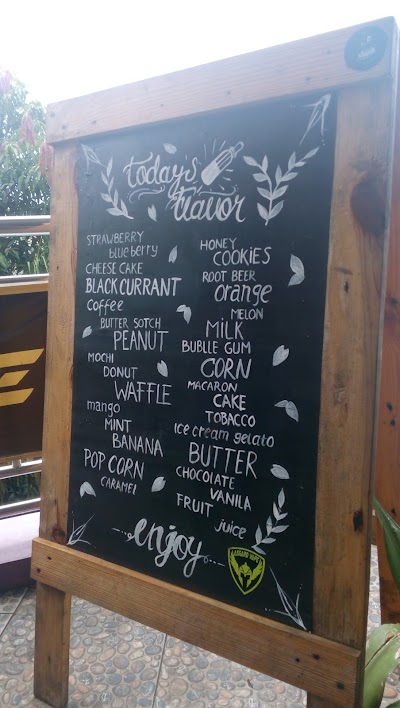 today's
flavor
STRAWBERRY
blueberry
CHEESE CAKE
BLACK CURRANT
Coffee
BUTTER SOTCH
PEANUT
MOCHI
DONUT
WAFFLE
mango
MINT
BANANA
POP CORN
CARAMEL
HONEY
COOKIES
ROOT BEER
orange
MELON
MILK
BUBLLE GUM
CORN
MACARON
CAKE
TOBACCO
ice cream gelato
BUTTER
CHOCOLATE
VANILA
FRUIT
juice
enjoy